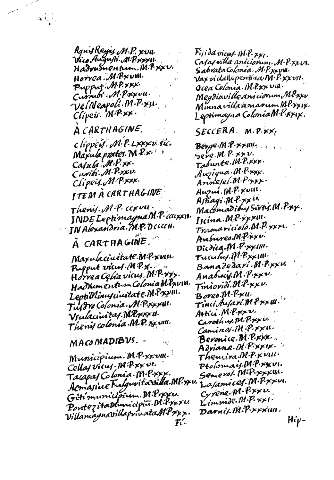 Agris Regijs .M.P. XVII.
Vico Augusti .M.P.XXXII.
Hadrumentum .M.P.XXV.
Horrea .M.P.XVIII.
Pupput .M.P.XXX.
Curubi .M.P.XXVII.
Vel Neapoli .M.P.XII.
Clipeis .M.P.XX.
À CARTHAGINE
Clippeis .M.P.LXXXV. sic.
Maxula prates .M.P.X.
Casula .M.P.XX.
Curubi .M.P.XXV.
Clipeis .M.P.XXX.
ITEM À CARTHAGINE
Thenis .M.P.CCXVII.
INDE Leptimagna .M.P.CCCXXII.
IN Alexandria .M.P.DCCCCII.
À CARTHAGINE
Maxula civitate .M.P.XVIII.
Pupput vicus .M.P.X.
Horrea Celia vicus .M.P.XXX.
Hadrumentum Colonia .M.P.XVIII.
Leptiminus civitate .M.P.XVIII.
Tusdro Colonia .M.P.XXXIII.
Usula civitas .M.P.XXXII.
Thenis colonia .M.P.XXVIII.
MACOMADIBUS.
Municipium .M.P.XXVIII.
Cellas vicus .M.P.XXVI.
Tacapas Colonia .M.P.XXX.
Gitti municipium .M.P.XXXV.
Pontezita Municipiũ .M.P.XXXV.
Villa magna villa privata .M.P.XXX.
Fi-
Fisida vicus .M.P.XXI.
Casas villa aniciorum .M.P.XXVI.
Sabrata Colonia .M.P.XXVIII.
Vax villa Repentina .M.P.XXVII.
Ocea Colonia .M.P.XXVIII.
Megradi villa aniciorum .M.P.XXV
Minna villa marsi .M.P.XXIX.
Leptimagna Colonia .M.P.XXIX.
SECCERA .M.P.XX.
Berge .M.P.XXIIII.
Sere .M.P.XXV.
Tabunte .M.P.XXX.
Auziqua .M.P.XXX.
Annesel .M.P.XXX.
Auxui .M.P.XVIII.
Astiagi .M.P.XXX.
Macomadibus Syrtis .M.P.XX.
Iscina .M.P.XXXIII.
Tramaricíolo .M.P.XXXI.
Aubereo .M.P.XXV.
Digdica .M.P.XXIIII.
Tuculus .M.P.XXIIII.
Banadedari .M.P.XXXV.
Anabucis .M.P.XXV.
Tiniodiri .M.P.XXV.
Boreo .M.P.XII.
Tini, Ausari .M.P.XXIII.
Attici .M.P.XXV.
Carothus .M.P.XXV.
Caminos .M.P.XXII.
Beronice .M.P.XXX.
Adriane .M.P.XXIX.
Theucira .M.P.XVIII.
Ptolomais .M.P.XXVI.
Semeros .M.P.XXXII.
Lasamices .M.P.XXVI.
Cyrene .M.P.XXV.
Limnide .M.P.XXI.
Darnis .M.P.XXXIII.
Hip-